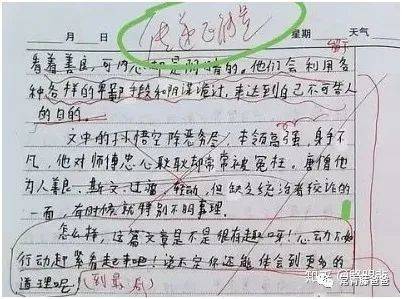 传递正能量
月 日 星期 天气
看着善良,可内心却是阴暗的。他们会利用各
种各样的卑鄙手段和阴谋诡计,来达到自己不可告人
的目的。
文中的孙悟空降恶务尽,本领高强,身手不
凡,他对师傅忠心耿耿却常常被冤枉。唐僧他
为人善良、斯文
但缺乏统治者狡诈的
一面,有时候就特别不明事理。
怎么样,这篇文章是不是很有趣呀!心动不如
行动赶紧看起来吧!说不定你还能体会到更多的
道理呢!(到最后)
知乎